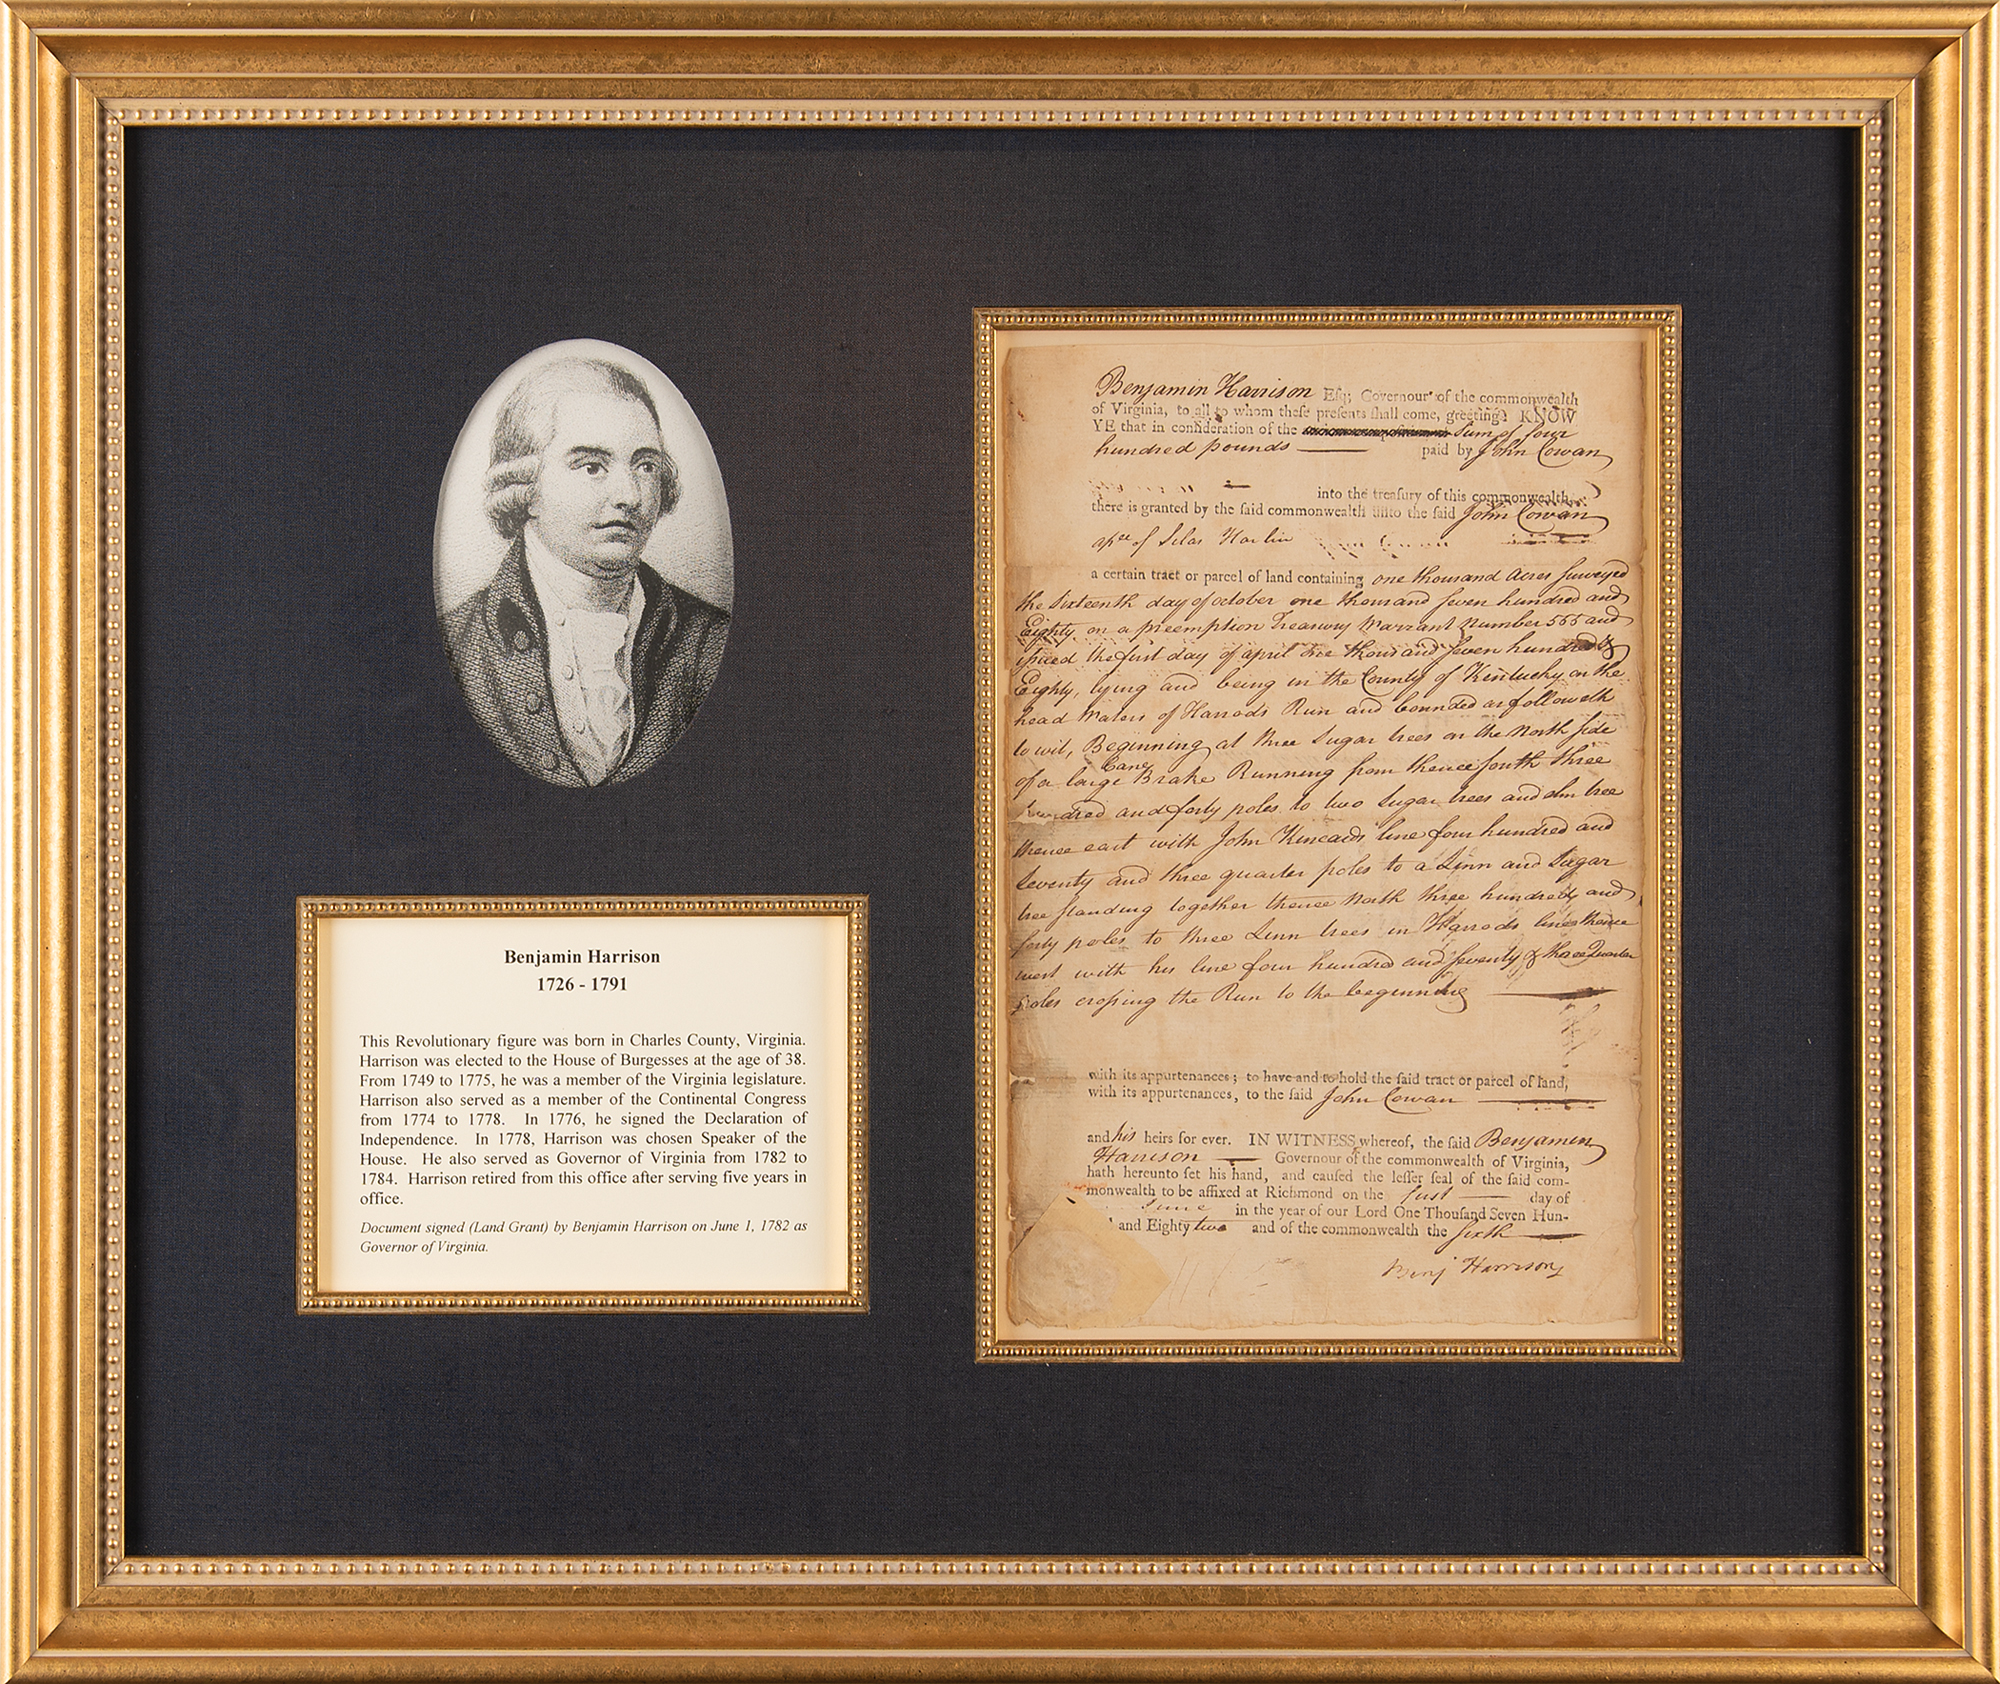 Benjamin Harrison
1726 - 1791
This Revolutionary figure was born in Charles County, Virginia.
Harrison was elected to the House of Burgesses at the age of 38.
From 1749 to 1775, he was a member of the Virginia legislature.
Harrison also served as a member of the Continental Congress
from 1774 to 1778. In 1776, he signed the Declaration of
Independence. In 1778, Harrison was chosen Speaker of the
House. He also served as Governor of Virginia from 1782 to
1784. Harrison retired from this office after serving five years in
office.
Document signed (Land Grant) by Benjamin Harrison on June 1, 1782 as
Governor of Virginia.
Benjamin Harrison Esq; Governour of the commonwealth
of Virginia, to all to whom theſe preſents ſhall come, greeting: KNOW
YE that in conſideration of the Sum of four
hundred pounds paid by John Cowan
into the treaſury of this commonwealth,
there is granted by the ſaid commonwealth unto the ſaid John Cowan
of Silas Harlin
a certain tract or parcel of land containing one thousand Acres Surveyed
the Sixteenth day of october one thousand Seven hundred and
Eighty on a preemption Treasury Warrant Number 565 and
the first day of april one thousand Seven hundred &
Eighty, lying and being in the County of Kentucky on the
head Waters of Harrods Run and bounded as followeth
to wit, Beginning at three Sugar trees on the North side
of a large Cane Brake Running from thence south three
hundred and forty poles to two Sugar trees and elm tree
thence east with John Kincaids line four hundred and
Seventy and three quarter poles to a Linn and Sugar
tree standing together thence North three hundred and
forty poles to three Linn trees in Harrods line thence
west with his line four hundred and seventy & three Quarter
poles crossing the Run to the beginning
with its appurtenances; to have and to hold the ſaid tract or parcel of land,
with its appurtenances, to the ſaid John Cowan
and his heirs for ever. IN WITNESS whereof, the ſaid Benjamin
Harrison Governour of the commonwealth of Virginia,
hath hereunto ſet his hand, and cauſed the leſſer ſeal of the ſaid com-
monwealth to be affixed at Richmond on the first day of
June in the year of our Lord One Thouſand Seven Hun-
and Eighty two and of the commonwealth the Sixth
Benj Harrison